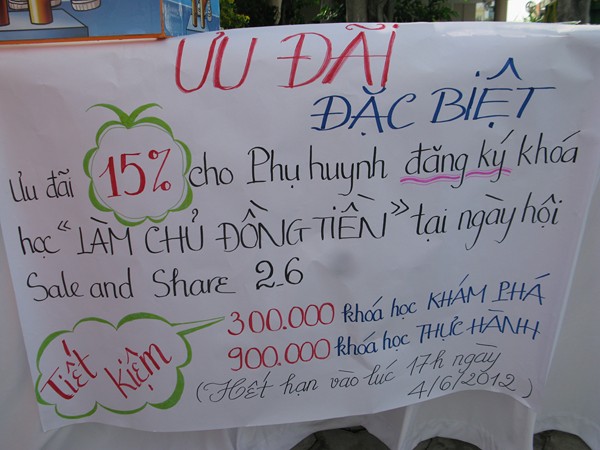 ƯU ĐÃI
ĐẶC BIỆT
Ưu đãi 15% cho Phụ huynh đăng ký khoá
học “LÀM CHỦ ĐỒNG TIỀN” tại ngày hội
Sale and Share 2_6
Tiết kiệm
300.000 khoá học KHÁM PHÁ
900.000 khoá học THỰC HÀNH
(Hết hạn vào lúc 17h ngày
4/6/2012)